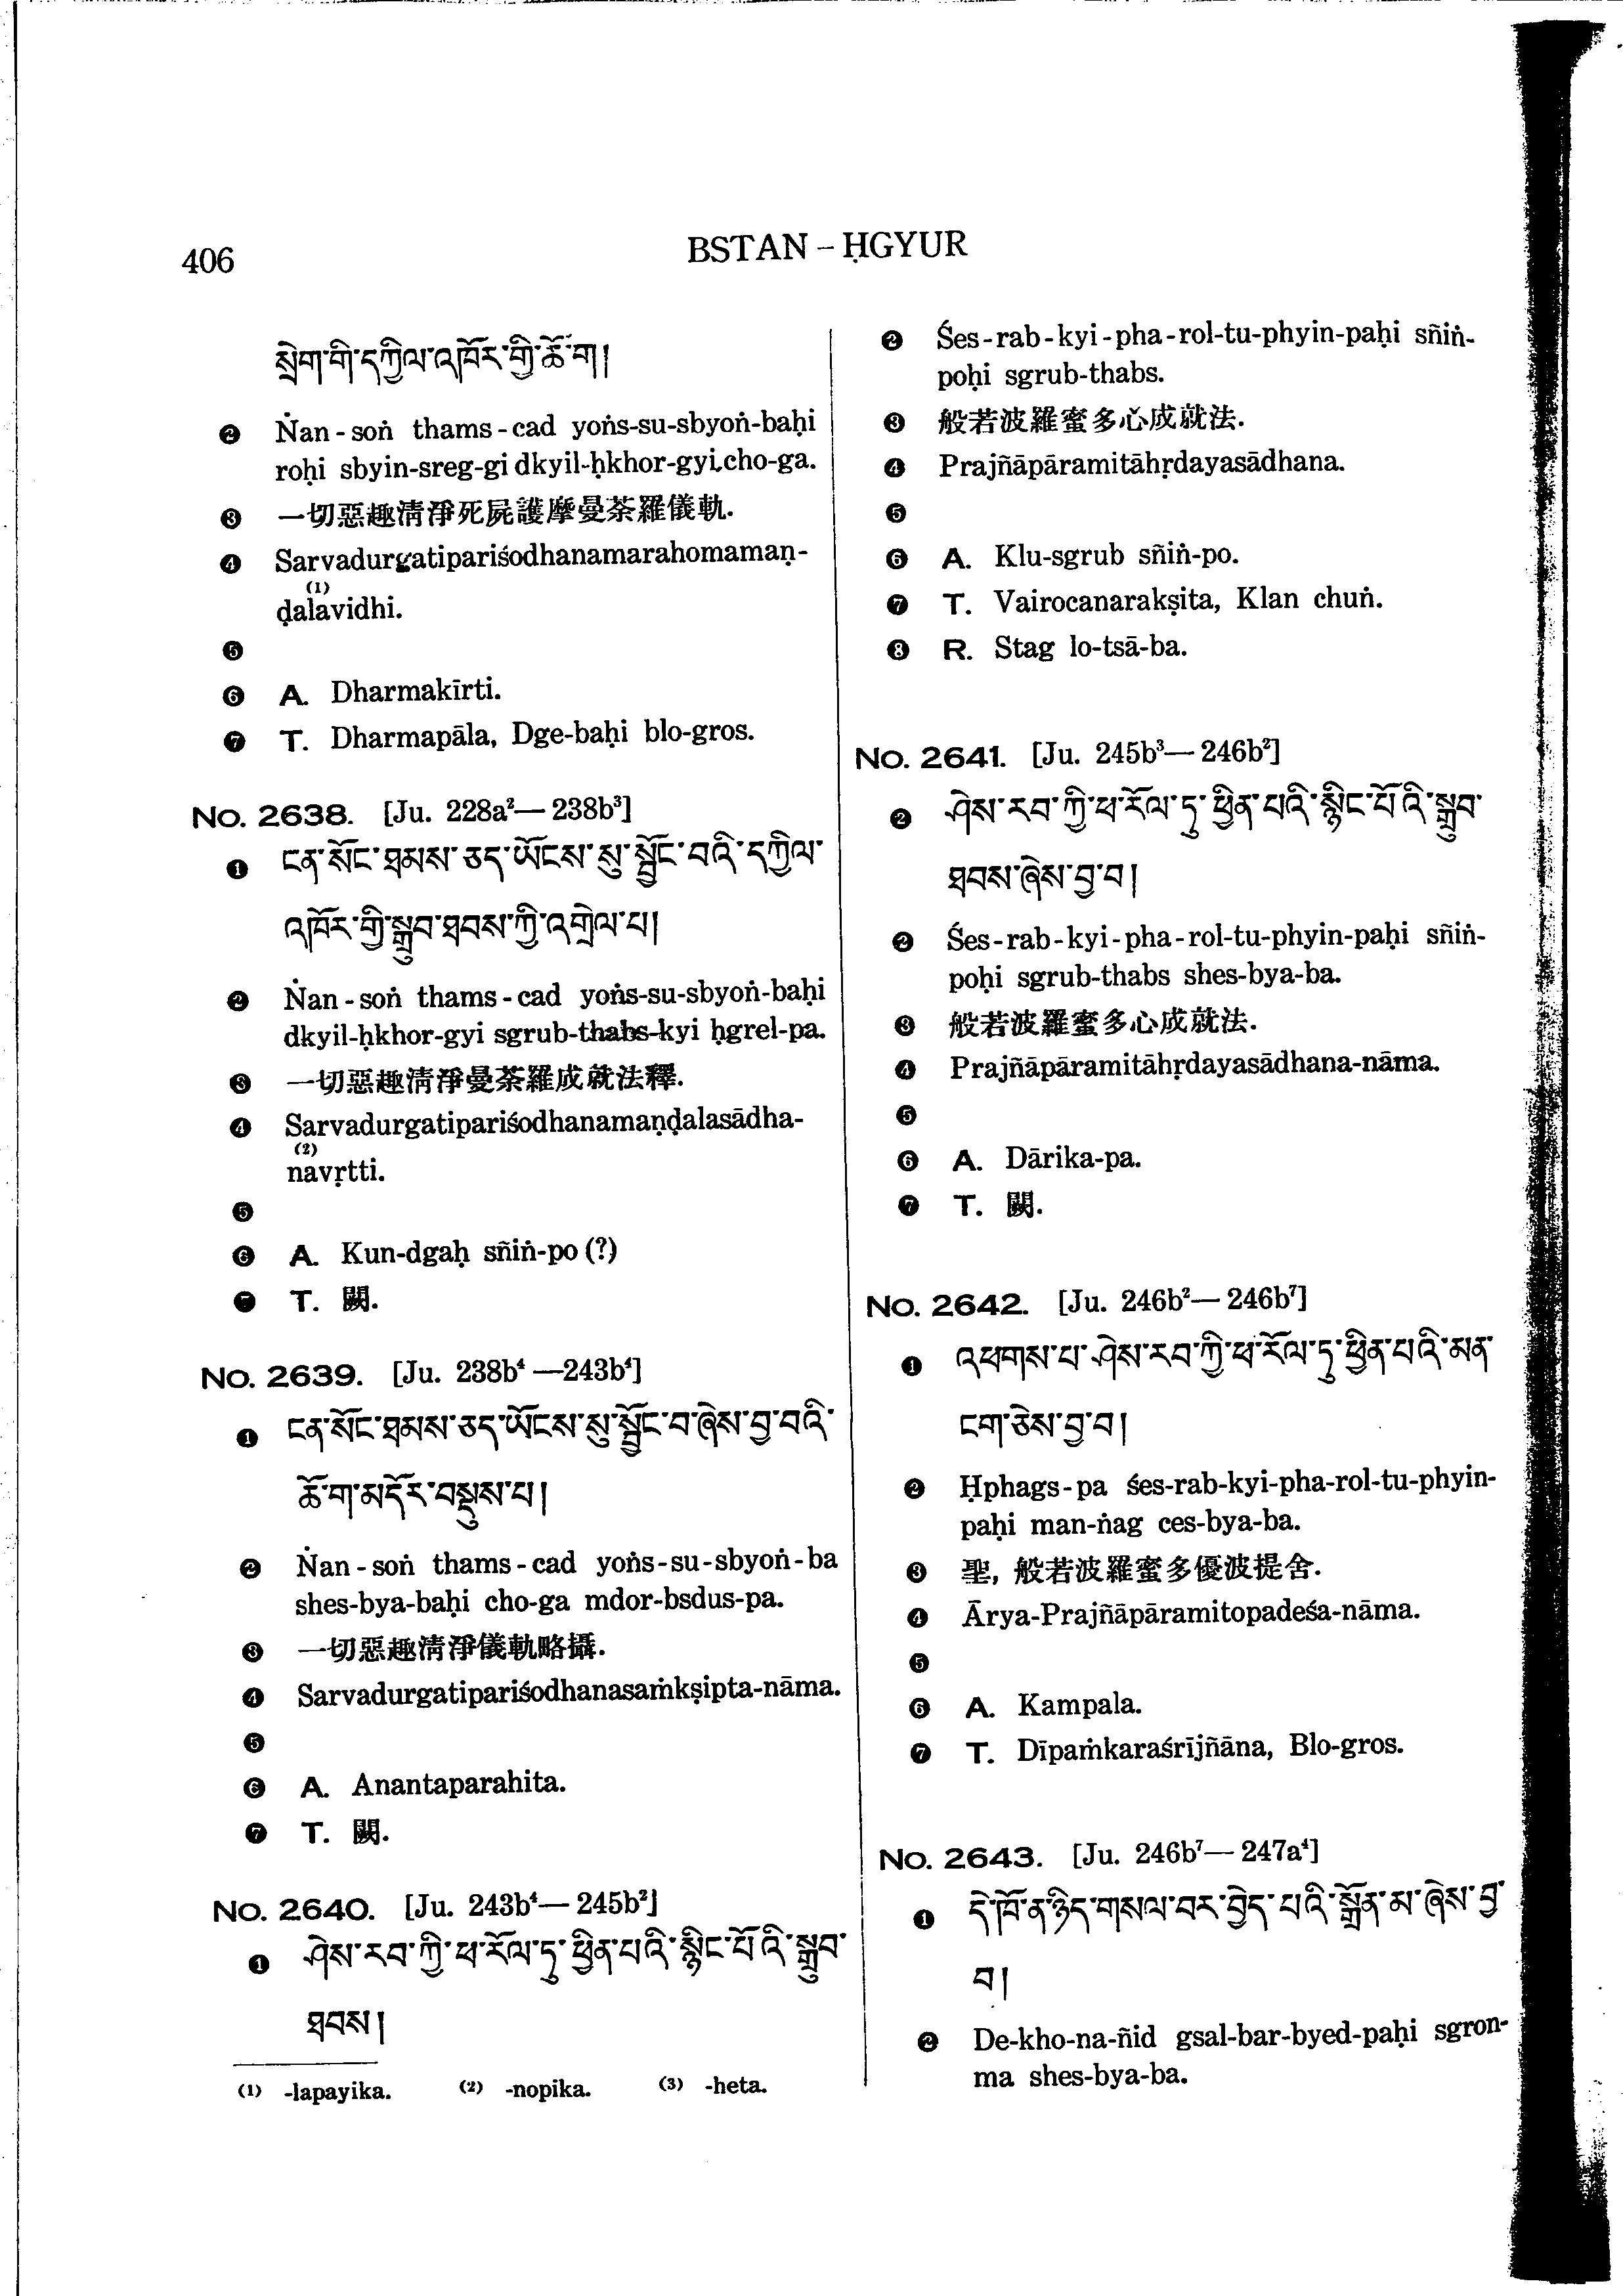 406
BSTAN – ḤGYUR
སྲེག་གི་དཀྱིལ་འཁོར་གྱི་ཆོ་ག།
❷ Ṅan-soṅ thams-cad yoṅs-su-sbyoṅ-baḥi
roḥi sbyin-sreg-gi dkyil-ḥkhor-gyi cho-ga.
❸ 一切惡趣淸淨死屍護摩曼荼羅儀軌.
❹ Sarvadurgatipariśodhanamarahomamaṇ-
(1)
ḍalavidhi.
❺
❻ A. Dharmakīrti.
❼ T. Dharmapāla, Dge-baḥi blo-gros.
No. 2638. [Ju. 228a²— 238b³]
❶ ངན་སོང་ཐམས་ཅད་ཡོངས་སུ་སྦྱོང་བའི་དཀྱིལ་
འཁོར་གྱི་སྒྲུབ་ཐབས་ཀྱི་འགྲེལ་པ།
❷ Ṅan-soṅ thams-cad yoṅs-su-sbyoṅ-baḥi
dkyil-ḥkhor-gyi sgrub-thabs-kyi ḥgrel-pa.
❸ 一切惡趣淸淨曼荼羅成就法釋.
❹ Sarvadurgatipariśodhanamaṇḍalasādha-
(2)
navṛtti.
❺
❻ A. Kun-dgaḥ sñiṅ-po (?)
❼ T. 闕.
No. 2639. [Ju. 238b⁴ —243b⁴]
❶ ངན་སོང་ཐམས་ཅད་ཡོངས་སུ་སྦྱོང་བ་ཞེས་བྱ་བའི་
ཆོ་ག་མདོར་བསྡུས་པ།
❷ Ṅan-soṅ thams-cad yoṅs-su-sbyoṅ-ba
shes-bya-baḥi cho-ga mdor-bsdus-pa.
❸ 一切惡趣淸淨儀軌略攝.
❹ Sarvadurgatipariśodhanasaṁkṣipta-nāma.
❺
❻ A. Anantaparahita.
❼ T. 闕.
No. 2640. [Ju. 243b⁴— 245b²]
❶ ཤེས་རབ་ཀྱི་ཕ་རོལ་ཏུ་ཕྱིན་པའི་སྙིང་པོའི་སྒྲུབ་
ཐབས།
(1) -lapayika. (2) -nopika. (3) -heta.
❷ Śes-rab-kyi-pha-rol-tu-phyin-paḥi sñiṅ-
poḥi sgrub-thabs.
❸ 般若波羅蜜多心成就法.
❹ Prajñāpāramitāhṛdayasādhana.
❺
❻ A. Klu-sgrub sñiṅ-po.
❼ T. Vairocanarakṣita, Klan chuṅ.
❽ R. Stag lo-tsā-ba.
No. 2641. [Ju. 245b³— 246b²]
❷ ཤེས་རབ་ཀྱི་ཕ་རོལ་ཏུ་ཕྱིན་པའི་སྙིང་པོའི་སྒྲུབ་
ཐབས་ཞེས་བྱ་བ།
❷ Śes-rab-kyi-pha-rol-tu-phyin-paḥi sñiṅ-
poḥi sgrub-thabs shes-bya-ba.
❸ 般若波羅蜜多心成就法.
❹ Prajñāpāramitāhṛdayasādhana-nāma.
❺
❻ A. Dārika-pa.
❼ T. 闕.
No. 2642. [Ju. 246b²— 246b⁷]
❶ འཕགས་པ་ཤེས་རབ་ཀྱི་ཕ་རོལ་ཏུ་ཕྱིན་པའི་མན་
ངག་ཅེས་བྱ་བ།
❷ Ḥphags-pa śes-rab-kyi-pha-rol-tu-phyin-
paḥi man-ṅag ces-bya-ba.
❸ 聖, 般若波羅蜜多優波提舍.
❹ Ārya-Prajñāpāramitopadeśa-nāma.
❺
❻ A. Kampala.
❼ T. Dīpaṁkaraśrījñāna, Blo-gros.
No. 2643. [Ju. 246b⁷— 247a⁴]
❶ དེ་ཁོ་ན་ཉིད་གསལ་བར་བྱེད་པའི་སྒྲོན་མ་ཞེས་བྱ་
བ།
❷ De-kho-na-ñid gsal-bar-byed-paḥi sgron-
ma shes-bya-ba.